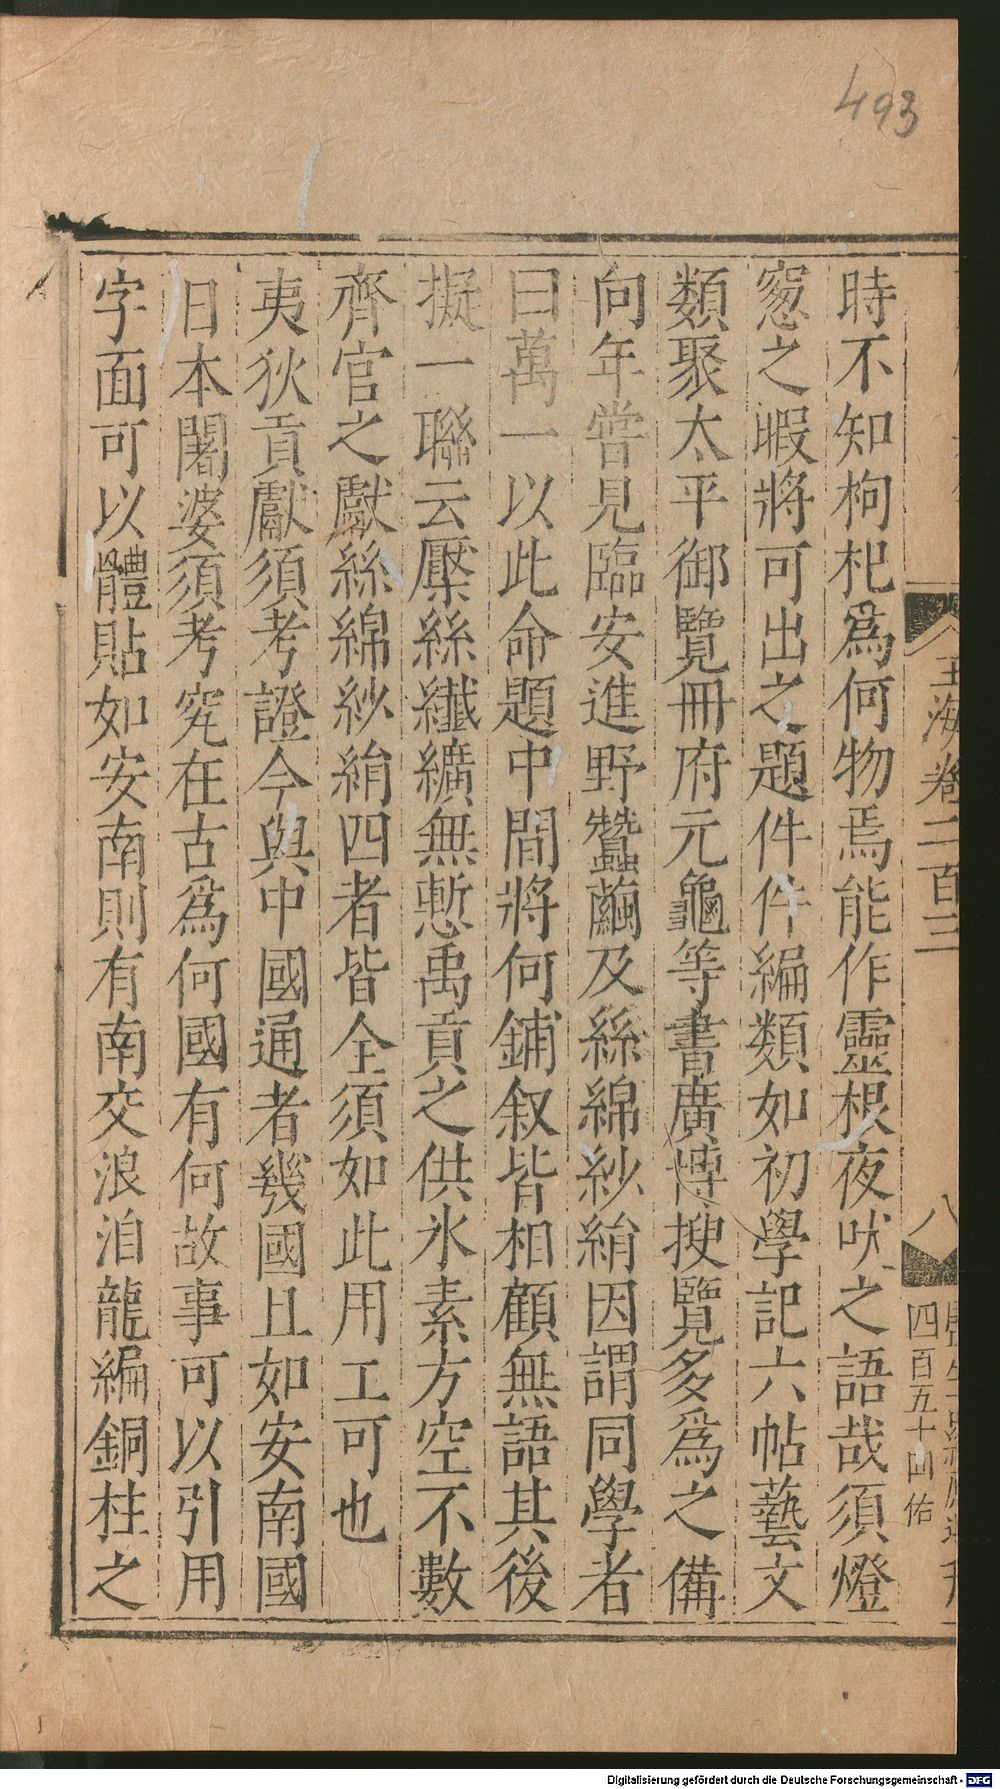 493
時不知枸杞爲何物焉能作靈根夜吠之語哉須燈
窓之暇將可出之題件件編類如初學記六帖藝文
類聚太平御覽冊府元龜等書廣博搜覽多爲之備
向年嘗見臨安進野蠶繭及絲綿紗絹因謂同學者
曰萬一以此命題中間將何鋪叙皆相顧無語其後
擬一聯云檿絲纖纊無慙禹貢之供氷素方空不數
齊官之獻絲綿紗絹四者皆全須如此用工可也
夷狄貢獻須考證今與中國通者幾國且如安南國
日本闍婆須考究在古爲何國有何故事可以引用
字面可以體貼如安南則有南交浪泊龍編銅柱之
玉海卷二百三
八
四百五十四 佑
Digitalisierung gefördert durch die Deutsche Forschungsgemeinschaft - DFG